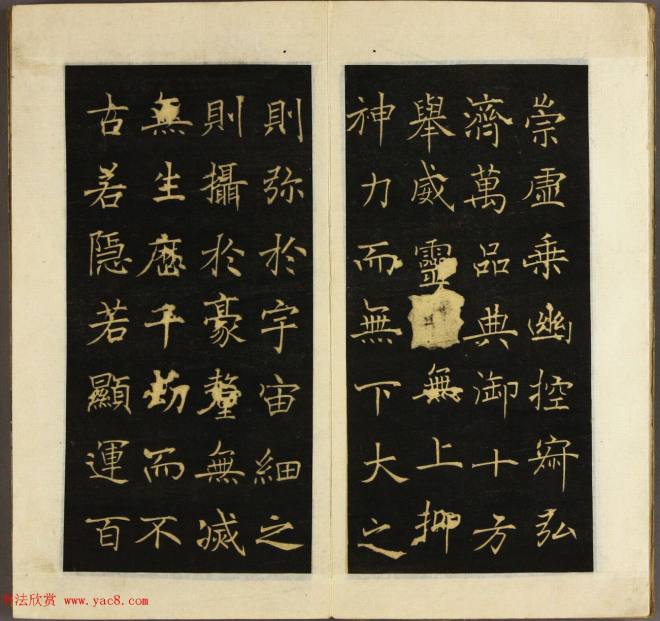 崇虛乗幽控寂弘
濟萬品典御十方
舉威靈無上抑
神力而無下大之
則弥於宇宙細之
則攝於豪釐無滅
無生歷千劫而不
古若隱若顯運百
书法欣赏 www.yac8.com